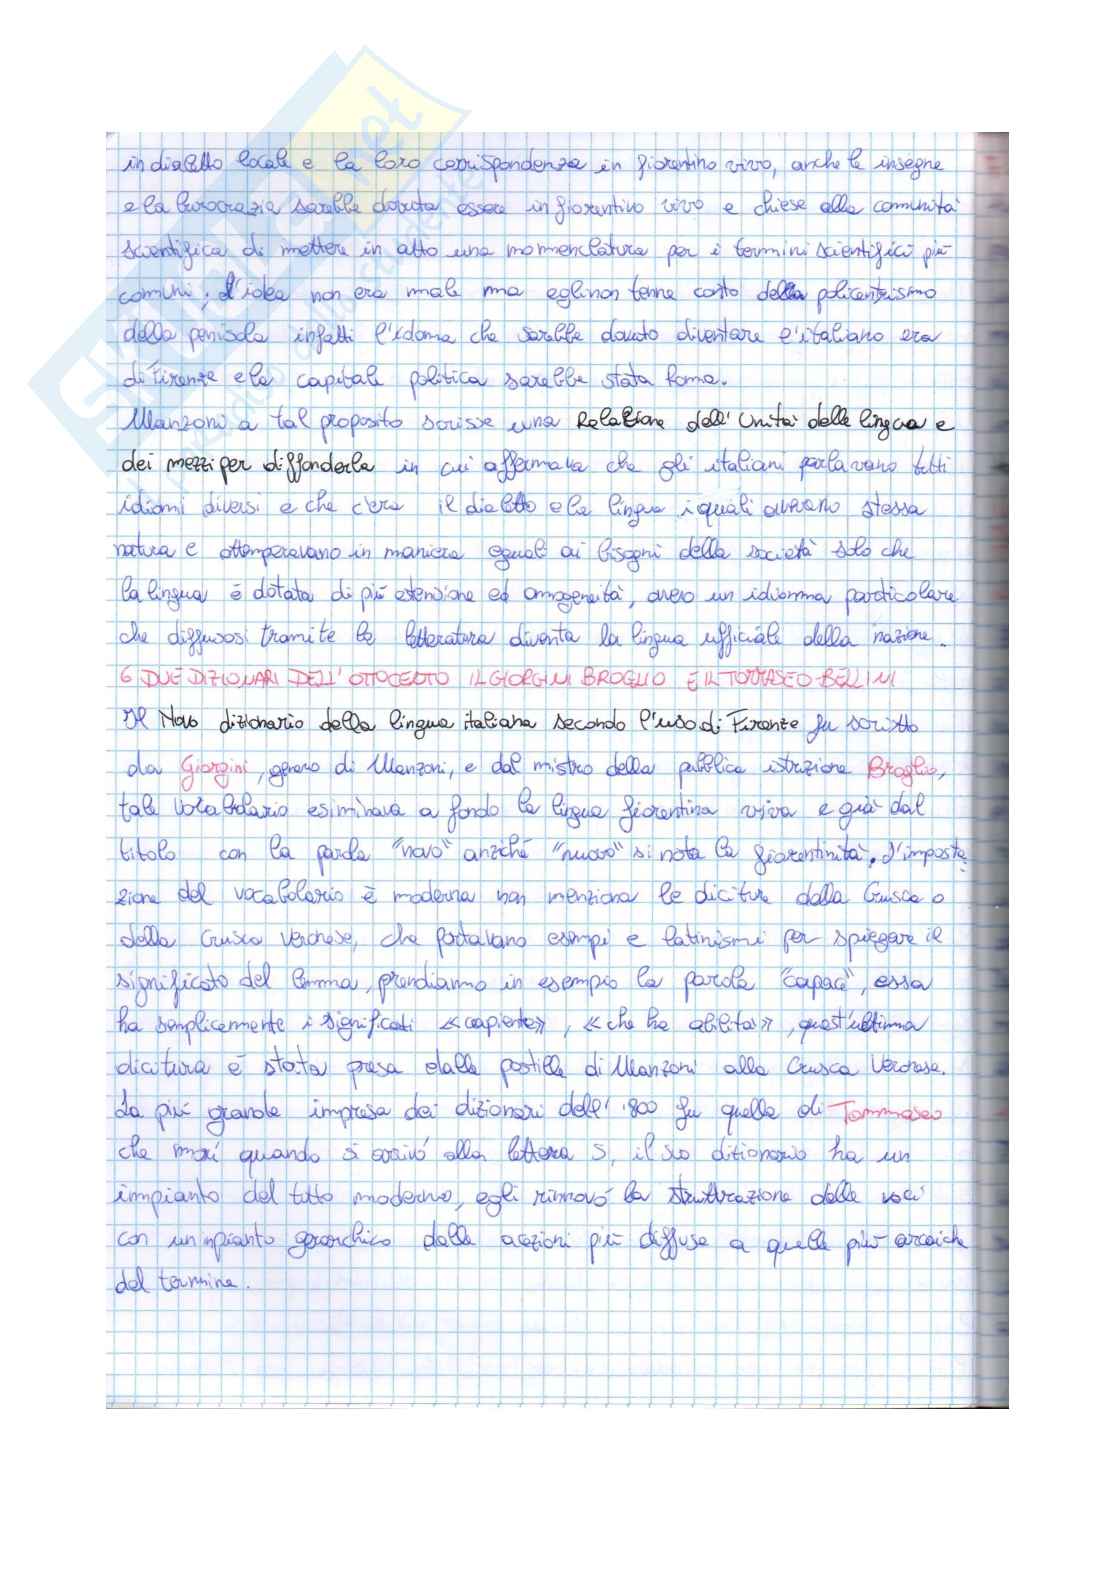 in dialetto locale e la loro corrispondenza in fiorentino vivo, anche le insegne
e la burocrazia sarebbe dovuta essere in fiorentino vivo e chiese alla comunità
scientifica di mettere in atto una nomenclatura per i termini scientifici più
comuni; l'idea non era male ma egli non tenne conto della policentrismo
della penisola infatti l'idoma che sarebbe dovuto diventare l'italiano era
di Firenze e la capitale politica sarebbe stata Roma.
Manzoni a tal proposito scrisse una Relazione dell'Unità della lingua e
dei mezzi per diffonderla in cui affermava che gli italiani parlavano tutti
idiomi diversi e che c'era il dialetto e la lingua i quali avevano stessa
natura e ottemperavano in maniera eguale ai bisogni della società solo che
la lingua è dotata di più estensione ed omogeneità, ovvero un idiomma particolare
che diffusosi tramite la letteratura diventa la lingua ufficiale della nazione.
6 DUE DIZIONARI DELL'OTTOCENTO IL GIORGINI BROGLIO E IL TOMMASEO-BELLINI
Il Novo dizionario della lingua italiana secondo l'uso di Firenze fu scritto
da Giorgini, genero di Manzoni, e dal mistro della pubblica istruzione Broglio,
tale vocabolario esiminava a fondo la lingua fiorentina viva e già dal
titolo con la parola "novo" anziché "nuovo" si nota la fiorentinità. L'imposta
zione del vocabolario è moderna non menziona le diciture dalla Crusca o
della Crusca Veronese, che portavano esempi e latinismi per spiegare il
significato del lemma, prendiamo in esempio la parola "capace", essa
ha semplicemente i significati «capiente», «che ha abilità», quest'ultima
dicitura è stata presa dalla postilla di Manzoni alla Crusca Veronese.
La più grande impresa dei dizionari dell'800 fu quella di Tommaseo
che morì quando si arrivò alla lettera S, il suo ditionario ha un
impianto del tutto moderno, egli rinnovò la strutturazione delle voci
con un inpianto gerarchico dalle accezioni più diffuse a quelle più arcaiche
del termine.